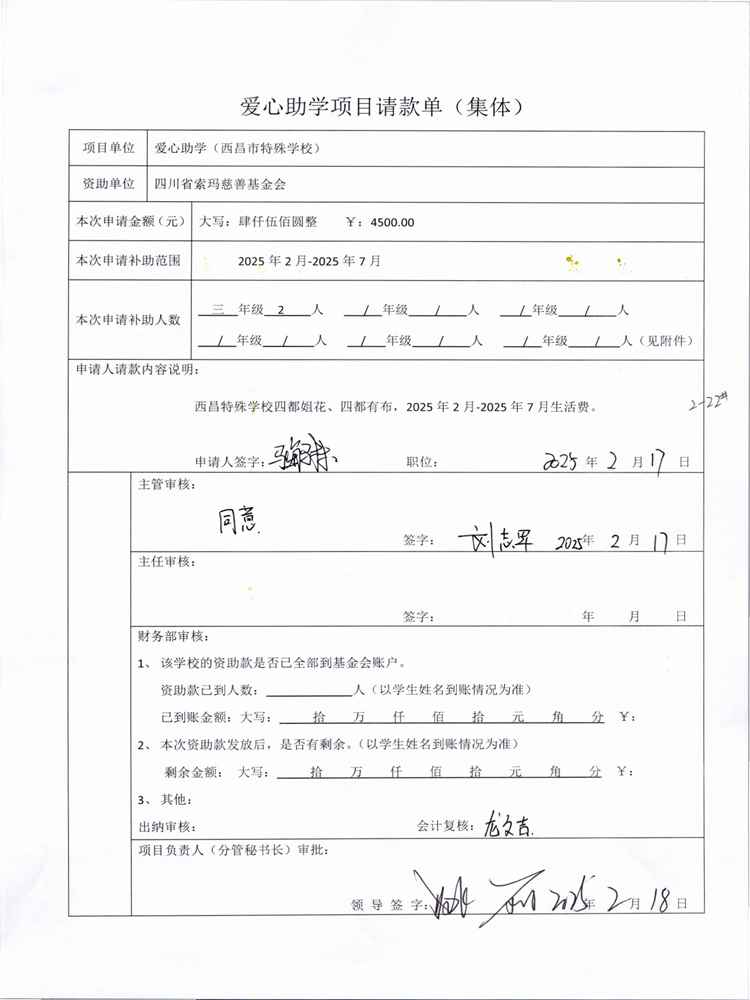 爱心助学项目请款单（集体）
项目单位 爱心助学（西昌市特殊学校）
资助单位 四川省索玛慈善基金会
本次申请金额（元） 大写：肆仟伍佰圆整 ￥：4500.00
本次申请补助范围 2025 年 2 月-2025 年 7 月
本次申请补助人数
三 年级 2 人 / 年级 / 人 / 年级 / 人
/ 年级 / 人 / 年级 / 人 / 年级 / 人（见附件）
申请人请款内容说明：
西昌特殊学校四都姐花、四都有布，2025 年 2 月-2025 年 7 月生活费。
2-22#
申请人签字： 职位： 2025 年 2 月 17 日
主管审核：
同意
签字： 刘志军 2025年 2 月 17 日
主任审核：
签字： 年 月 日
财务部审核：
1、 该学校的资助款是否已全部到基金会账户。
资助款已到人数：____________人（以学生姓名到账情况为准）
已到账金额：大写： 拾 万 仟 佰 拾 元 角 分 ￥：
2、 本次资助款发放后，是否有剩余。（以学生姓名到账情况为准）
剩余金额： 大写： 拾 万 仟 佰 拾 元 角 分 ￥：
3、 其他：
出纳审核： 会计复核：龙文吉
项目负责人（分管秘书长）审批：
领 导 签 字： 2025年 2 月 18 日